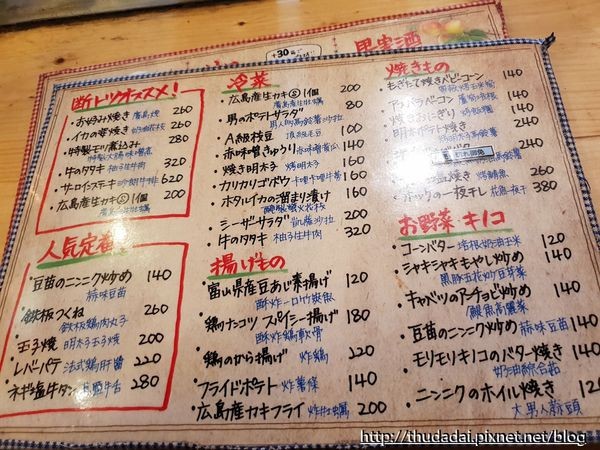 +30
果実酒
断トツオススメ!
・お好み焼き 260
廣島燒
・イカの姿焼き 260
奶油花枝
・特製モツ煮込み 280
特製大腸味噌煮
・牛のタタキ 320
柚子生牛肉
・サーロインステキ 620
・広島産生カキ 1個 200
廣島產生牡蠣
人気定番
・豆苗のニンニク炒め 140
蒜味豆苗
・鉄板つくね 260
鉄板鶏肉丸子
・玉子焼 160
明太子玉子燒
・レバーパテ 220
法式鵝肝醬
・ネギ塩牛タン 280
冷菜
・広島産生カキ 1個 200
廣島產生牡蠣
・男のポテトサラダ 80
男人的馬鈴薯沙拉
・A級枝豆 100
頂級毛豆
・赤味噌きゅうり 140
赤味噌黃瓜
・焼き明太子 160
烤明太子
・カリカリゴボウ 160
卡哩卡哩牛蒡
・ホタルイカの溜まり漬け 160
・シーザーサラダ 200
凱薩沙拉
・牛のタタキ 320
柚子生牛肉
揚げもの
・富山県産豆あじ素揚げ 120
酥炸一口竹筴魚
・鶏ナンコツ スパイシー揚げ 180
酥炸雞軟骨
・鶏のから揚げ 220
炸鶏
・フライドポテト 140
炸薯條
・広島産カキフライ 200
炸牡蠣
焼きもの
・もぎたて焼きベビーコーン 140
・アスパラベーコン 140
・焼きおにぎり 140
・明太ポテト焼き
240
260
一夜干し 380
花魚一夜干
お野菜 キノコ
・コーンバター 120
培根奶油玉米
・シャキシャキもやし炒め 140
黑豚五花炒豆芽菜
・キャベツのアンチョビ炒め 140
鯷魚高麗菜
・豆苗のニンニク炒め 140
蒜味豆苗
・モリモリキノコのバター焼き
奶油綜合菇
・ニンニクのホイル焼き 120
大男人蒜頭
http://thudadai.pixnet.net/blog